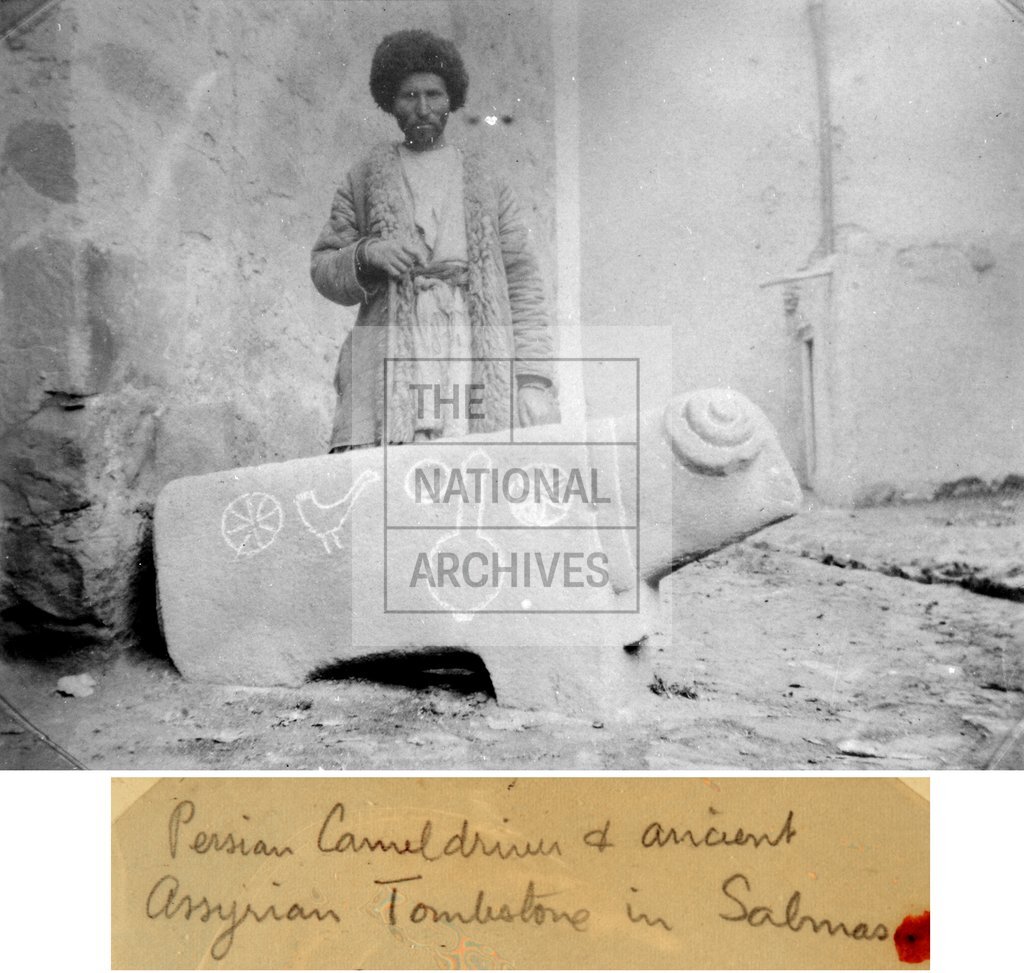 THE
NATIONAL
ARCHIVES
Persian Cameldriver & ancient
Assyrian Tombstone in Salmas